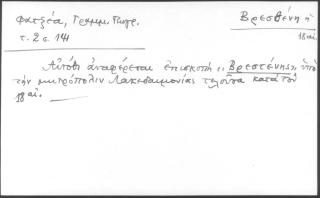 Φατζέα, Γραμμ. Γεωγρ.
τ. 2 σ. 141
Βρεσθένη ἡ
18 αἰ.
Αὐτόθι ἀναφέρεται ἐπισκοπὴ "Βρεστένης", ὑπὸ
τὴν μητρόπολιν Λακεδαιμονίας τελοῦσα κατὰ τὸν
18 αἰ.